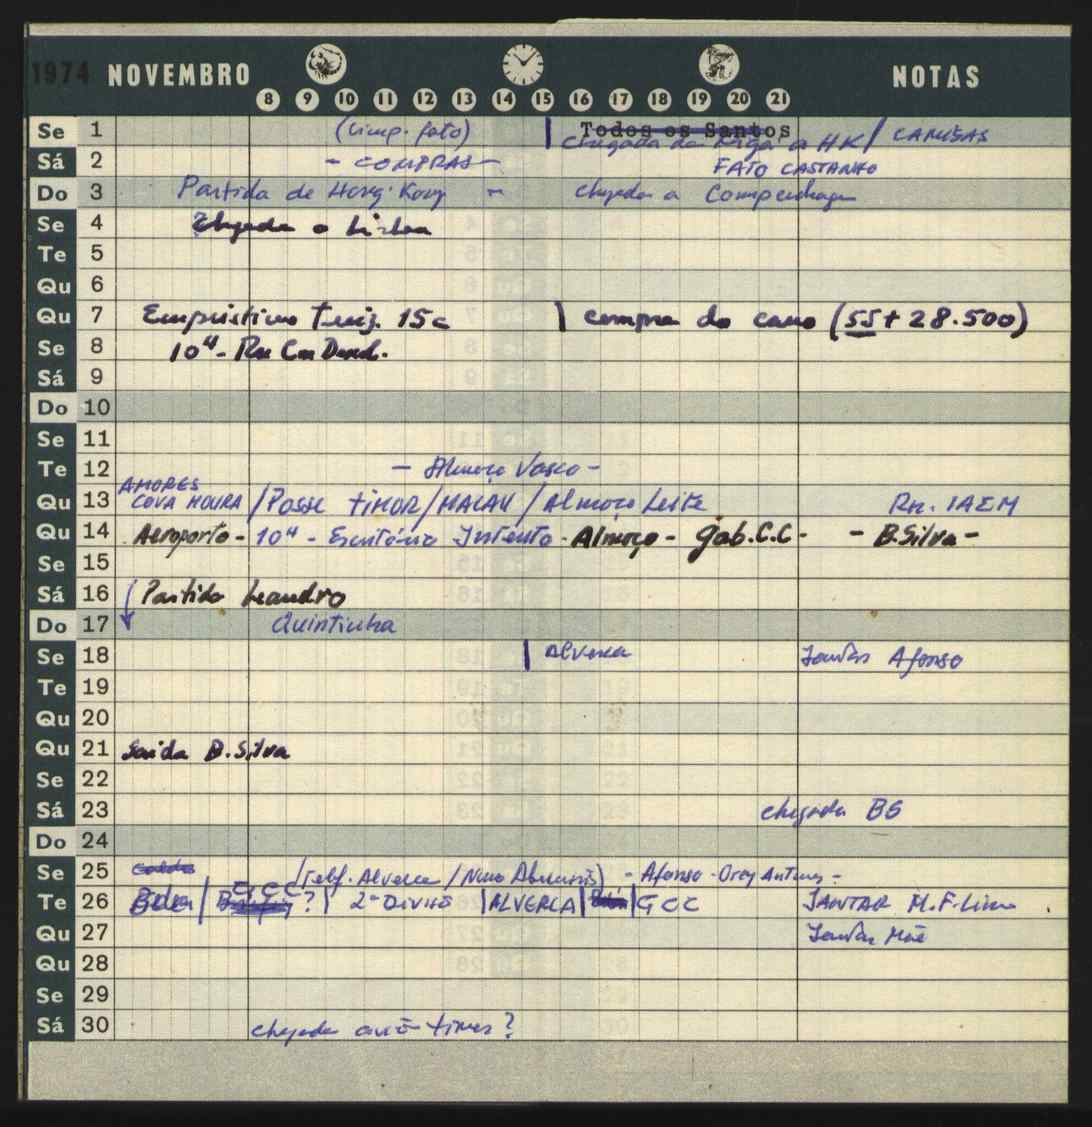 1974 NOVEMBRO NOTAS
8 9 10 11 12 13 14 15 16 17 18 19 20 21
Se 1 (limp. fato) Todos os Santos Chegada da a HK / CAMISAS
Sá 2 - COMPRAS - FATO CASTANHO
Do 3 Partida de Hong Kong - chegada a Compenhagen
Se 4 Chegada a Lisboa
Te 5
Qu 6
Qu 7 Empréstimo 15c compra do carro (55 + 28.500)
Se 8 10H -
Sá 9
Do 10
Se 11
Te 12 - Almoço Vasco -
AMORES
Qu 13 COVA MOURA / Posse TIMOR / MACAU / Almoço Leite Rn. IAEM
Qu 14 Aeroporto - 10H - Escritório - Almoço - Gab. C.C - - B. Silva -
Se 15
Sá 16 Partida Leandro
Do 17 Quintinha
Se 18 Alverca Jantar Afonso
Te 19
Qu 20
Qu 21 Saída B. Silva
Se 22
Sá 23 chegada BS
Do 24
Se 25 Caldas / Telef. Alverca / Nuno - Afonso -
CCC
Te 26 ?) 2ª DIVISÃO | ALVERCA | GCC JANTAR M. F. Lima
Qu 27 Jantar Mãe
Qu 28
Se 29
Sá 30 chegada avião timor ?